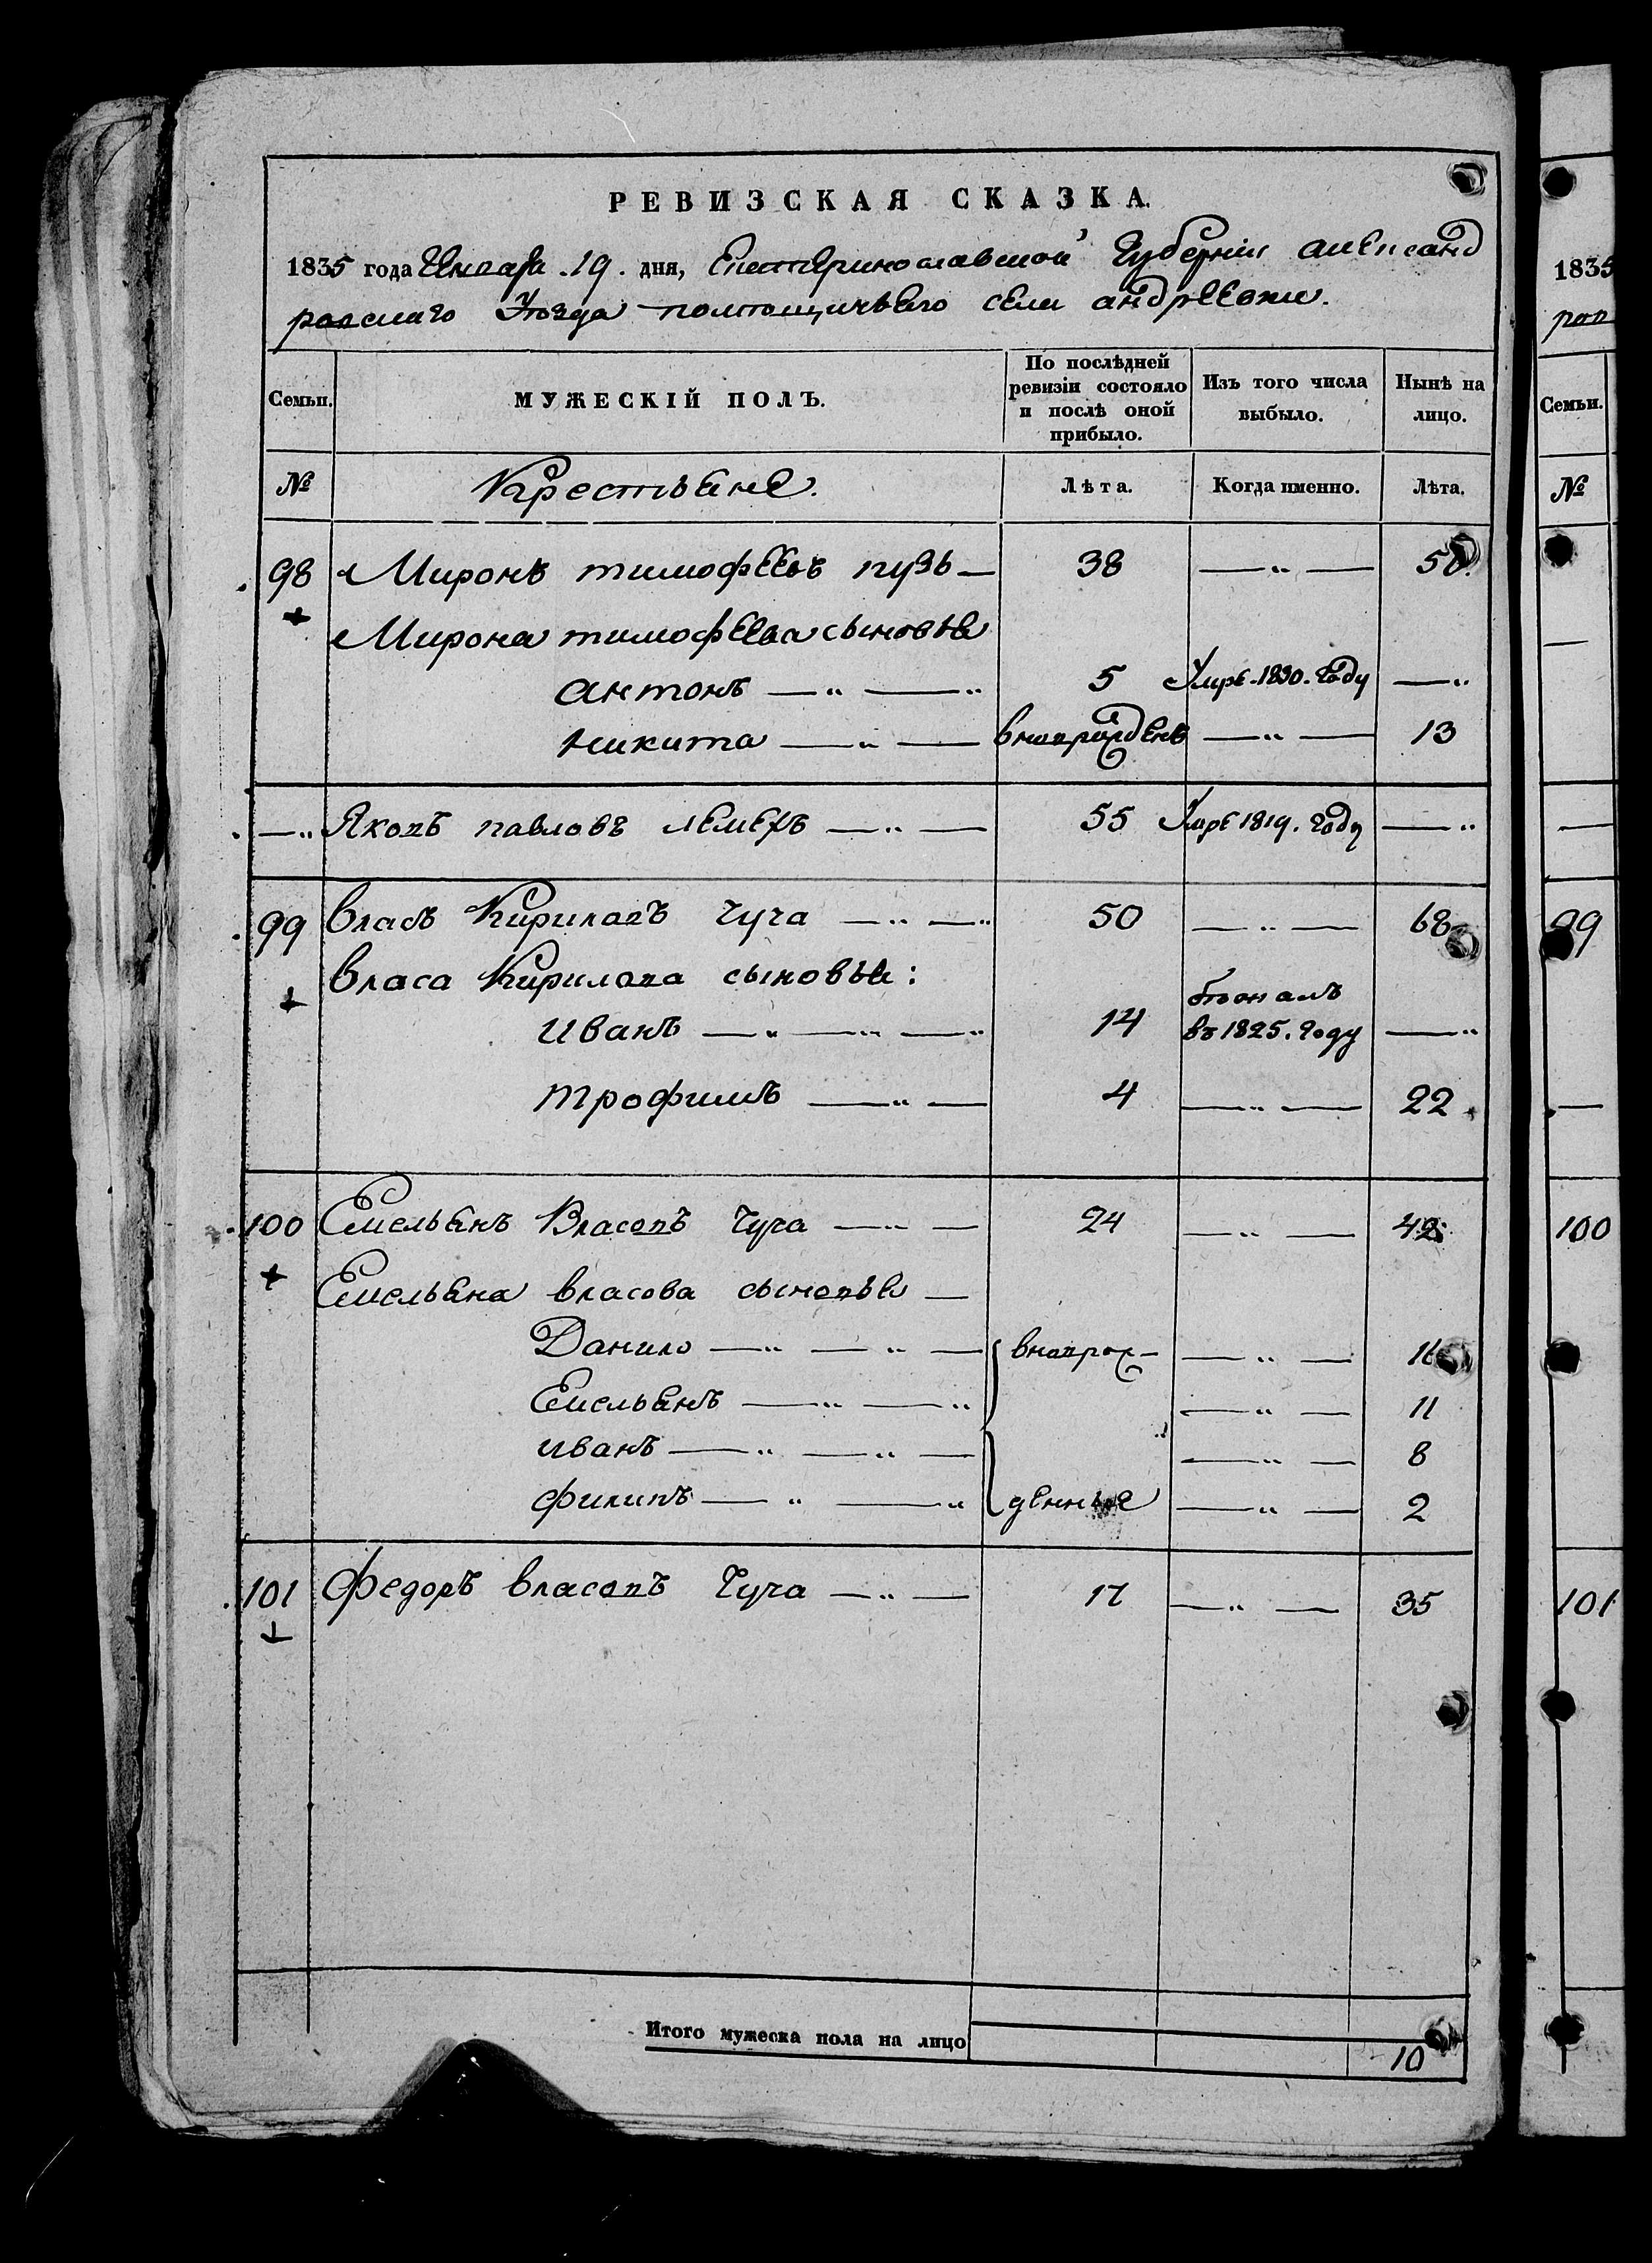 РЕВИЗСКАЯ СКАЗКА.
1835 года Генваря .19. дня, Екатеринославской Губерніи александ
ровскаго Уезда помещичьего села андреевки.
Семьи. МУЖЕСКІЙ ПОЛЪ. По послѣдней ревизіи состояло и послѣ оной прибыло. Изъ того числа выбыло. Нынѣ на лицо.
№ Крестьяне. Лѣта. Когда именно. Лѣта.
98 Миронъ тимофеевъ пузь — 38 —„— 56
Мирона тимофеева сыновья
антонъ —„—„ 5 Умре. 1830. Году —„
никита —„— вноврожденъ —„— 13
—„ Яковъ павловъ лемехъ —„— 55 Умре 1819. Году —„
99 власъ Кириловъ Чуча —„—„ 50 —„— 68
власа Кирилова сыновья:
иванъ —„—„—„ 14 бѣжалъ въ 1825. Году —„
трофимъ —„— 4 —„— 22
100 Емельянъ Власовъ Чуча —„— 24 —„— 42
Емельяна власова сыновья —
Данило —„—„— вновро — —„— 16
Емельянъ —„—„ —„— 11
иванъ —„—„— —„— 8
филипъ —„—„ жденные —„— 2
101 федоръ власовъ Чуча —„— 17 —„— 35
Итого мужеска пола на лицо 10
1835
ров
Семьи.
№
99
100
101